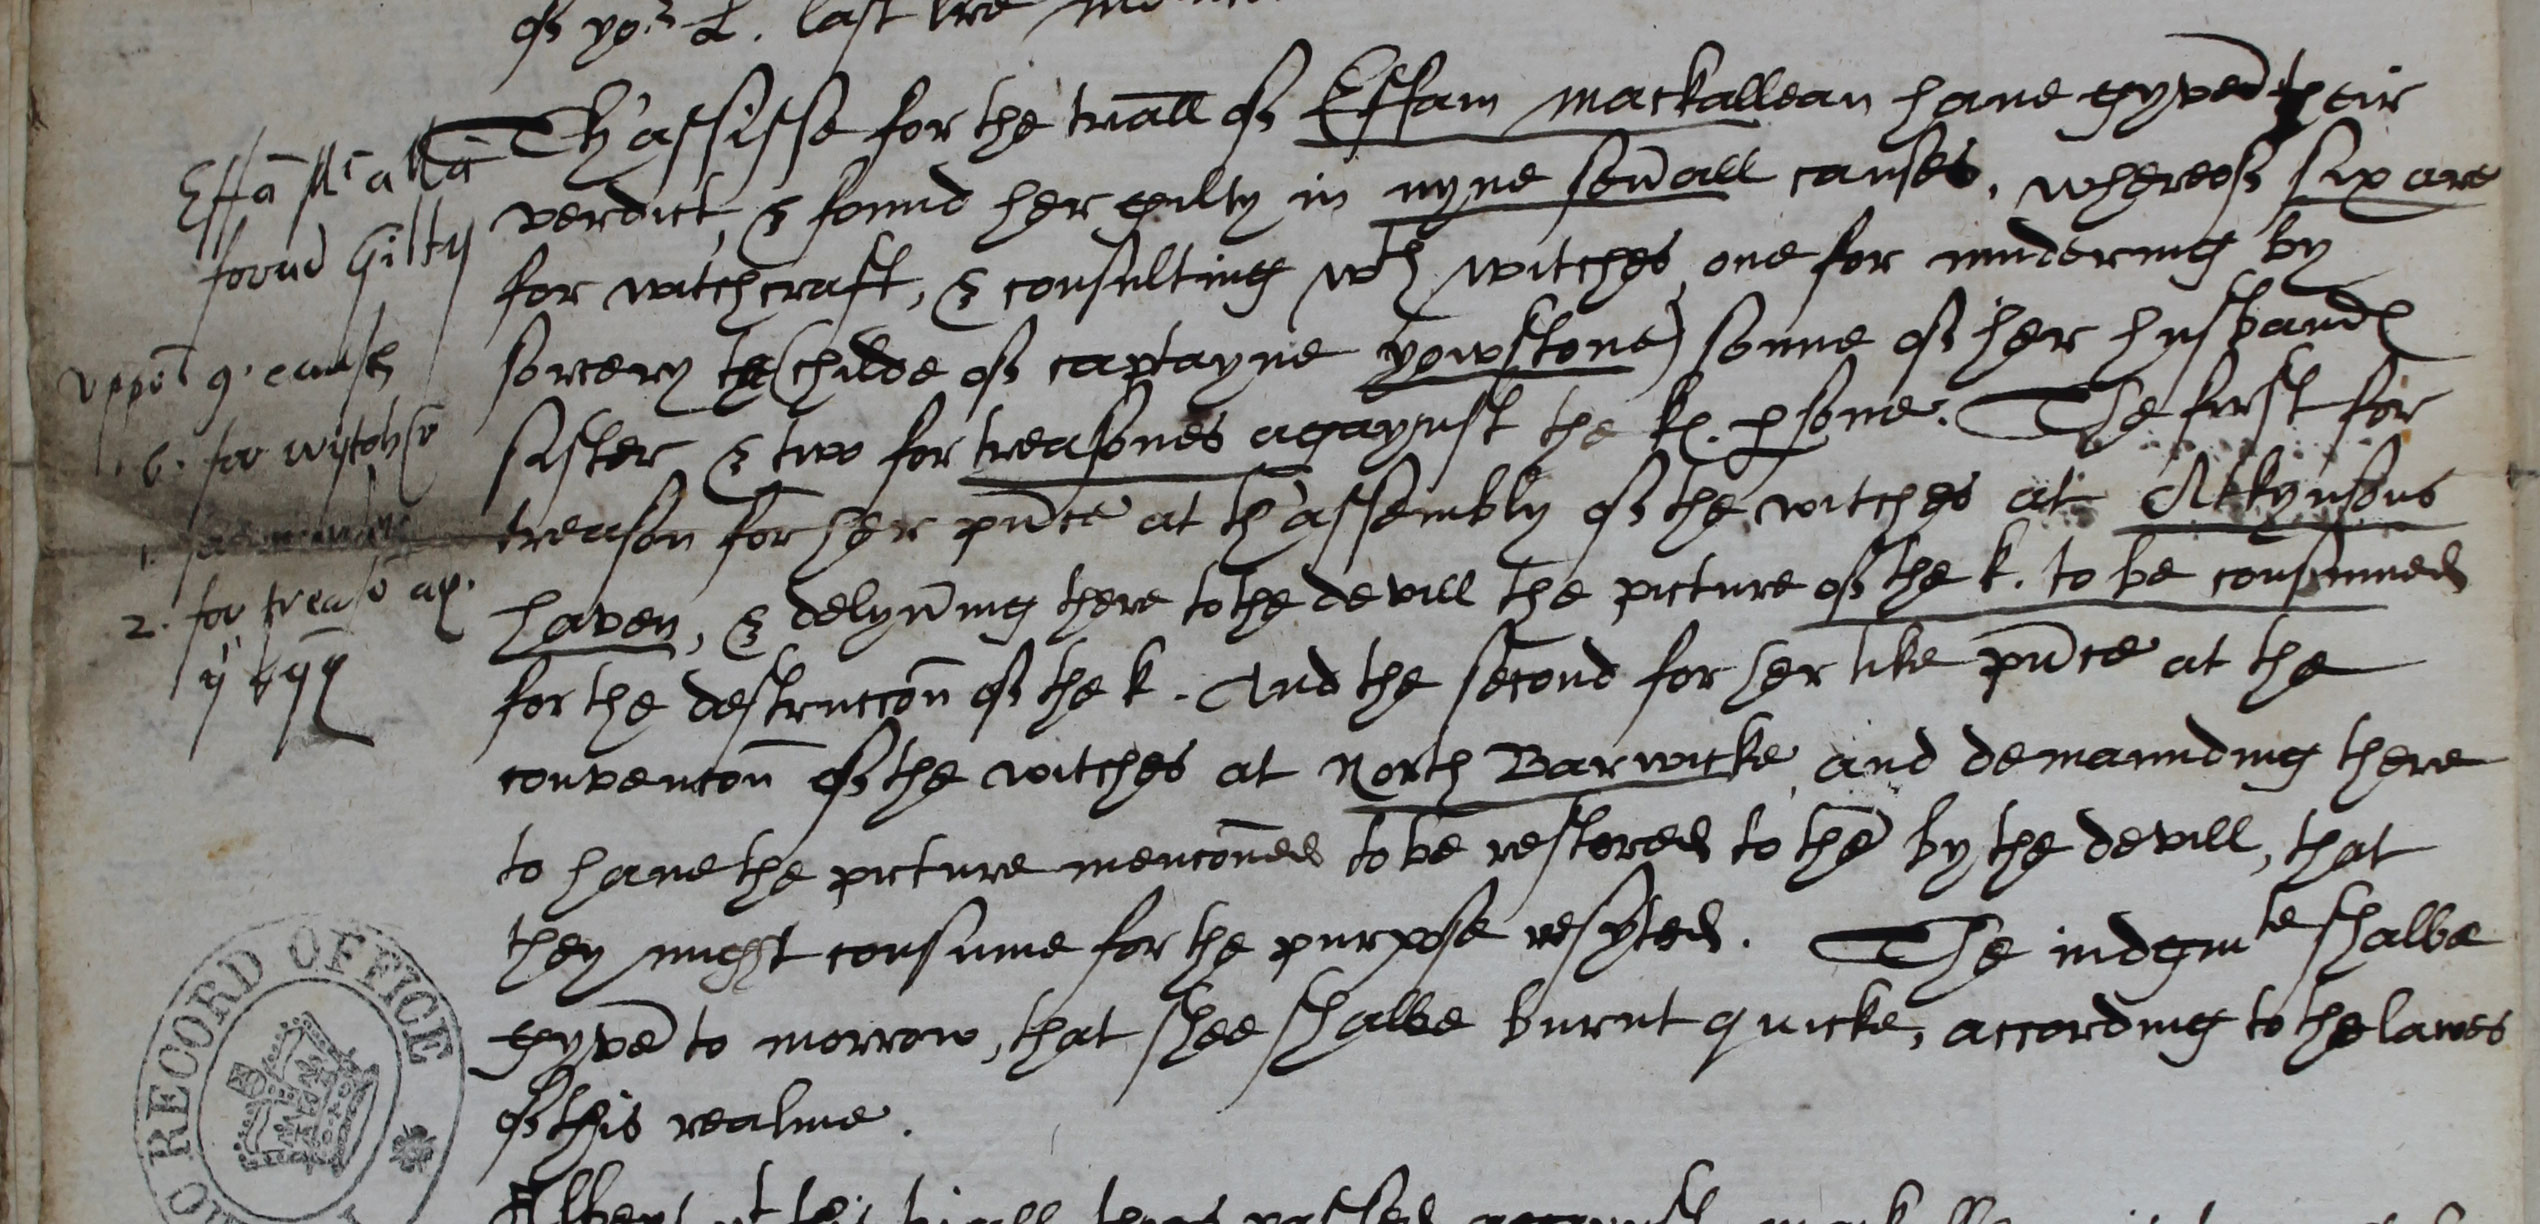 of yor L. last lre
Th'assisse for the triall of Effam mackallean have gyven their
verdict, & found her guilty in nyne seuall causes, whereof six are
for witchcraft, & consulting wth witches, one for murdering by
sorcery the (childe of captayne yowstone) sonne of her husbands
sister & two for treasones agaynst the k. psone. The first for
treason for her pnce at th'assembly of the witches at Atkynsons
haven, & delyuing there to the devill the picture of the k. to be consumed
for the destruccon of the k. And the second for her like pnce at the
convencon of the witches at North Barwicke and demaunding there
to have the picture menconed to be restored to them by the devill, that
they might consume for the purpose resyted. The iudgmte shalbe
gyven to morrow, that shee shalbe burnt quicke, according to the lawes
of this realme.
Effa Mcalla
found Gilty
uppon 9. causes
.6. for witch
1. for murder
2. for treaso ag.
y kyng
RECORD OFFICE